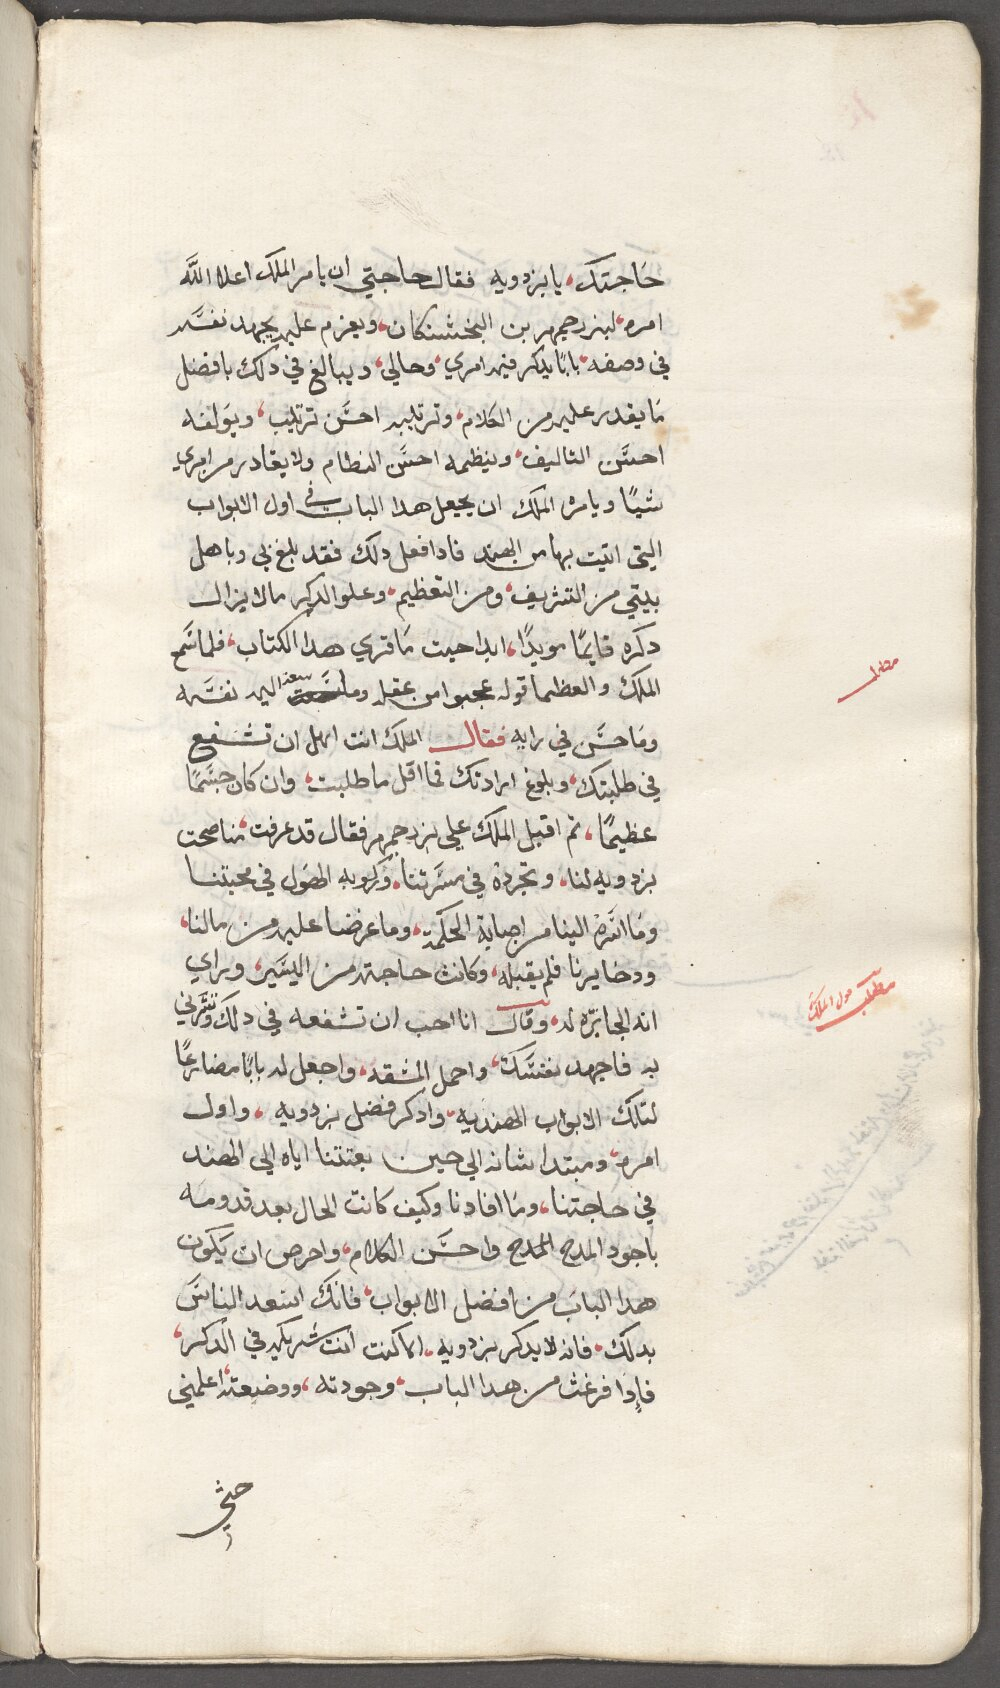 حاجتك، يا بزدويه فقال حاجتي ان يامر الملك اعلا الله
امره، لبزرجمهر بن البختنكان، ويعزم عليه يجهد نفسه
في وصفه، بابًا يدكر فيه امري، وحالي، ويبالغ في دلك بافضل
ما يقدر عليه من الكلام، وترتيبه احسن ترتيب، ويولفه
احسن التاليف، وينظمه احسن النظام ولا يغادر من امري
شيًا ويامره الملك ان يجعل هدا الباب في اول الابواب
التي اتيت بها من الهند فادا فعل دلك فقد بلغ بي وباهل
بيتي من التشريف، ومن التعظيم، وعلو الدكر ما لا يزال
دكره قايمًا مويدًا، ابدا حيت ما قري هدا الكتاب، فلما سمع
الملك والعظما قوله عجبوا من عقله وما سعة اليه نفسه
وما حسن في رايه فقال الملك انت اهل ان تشفع
في طلبتك، وبلوغ ارادتك فما اقل ما طلبت، وان كان جسمًا
عظيمًا، تم اقبل الملك علي بزرجمهر فقال قد عرفت، مناصحت
بزدويه لنا، وتجرده في مسرتنا، وركوبه الهول في محبتنا
وما اتره الينا من اصابة الحكمة، وما عرضنا عليه من مالنا،
ودخايرنا فلم يقبله، وكانت حاجته من اليسير، وبراي
انه الجايزه له، وقال انا احب ان تشفعه في دلك وتسرني
به فاجهد نفسك، واحمل المشقه، واجعل له بابًا مضارعًا
لتلك الابواب الهنديه، وادكر فضل بزدويه، واول
امره، ومبتدا شانه الي حين بعتتنا اياه الي الهند
في حاجتنا، وما افادنا وكيف كانت الحال بعد قدومه
باجود المدح المدح واحسن الكلام، واحرص ان يكون
هدا الباب من افضل الابواب، فانك اسعد الناس
بدلك، فانه لا يدكر بزدويه، الا كنت انت شريكه في الدكر،
فإدا فرغت من هدا الباب، وجودته، ووضعته، اعلمني
مطلب
مطلب قول الملك
حتي